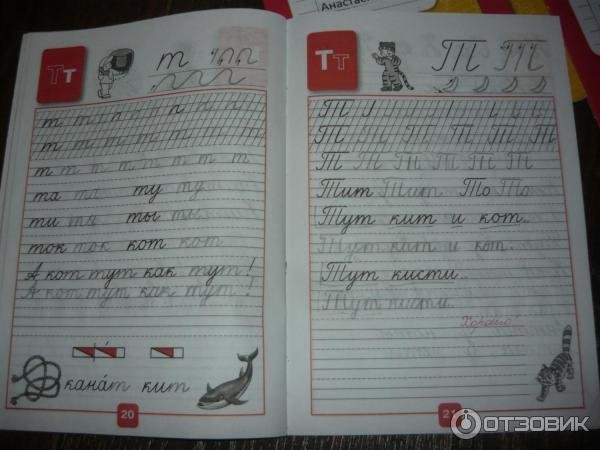 Анастас
Тт
т
т т т
т т т т т т т т
т т т т т т т т
та та ту тут
ти ти ты ты
ток ток кот кот
А кот тут как тут!
А кот тут как тут!
кана́т кит
20
Тт
Т Т
Т
Т Т Т Т Т Т
Т Т Т Т Т Т
Тит Тит То То
Тут кит и кот.
Тут кит и кот.
Тут кисти.
Тут кисти.
Хорошо!
21
ОТЗОВИК